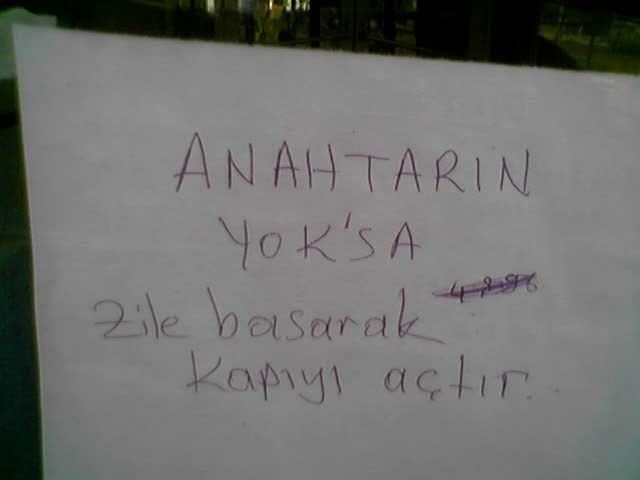 ANAHTARIN
YOK'SA
zile basarak
kapıyı açtır.